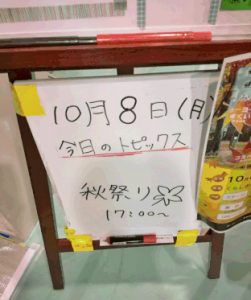 10月8日(月)
今日のトピックス
秋祭り
17:00〜
10月